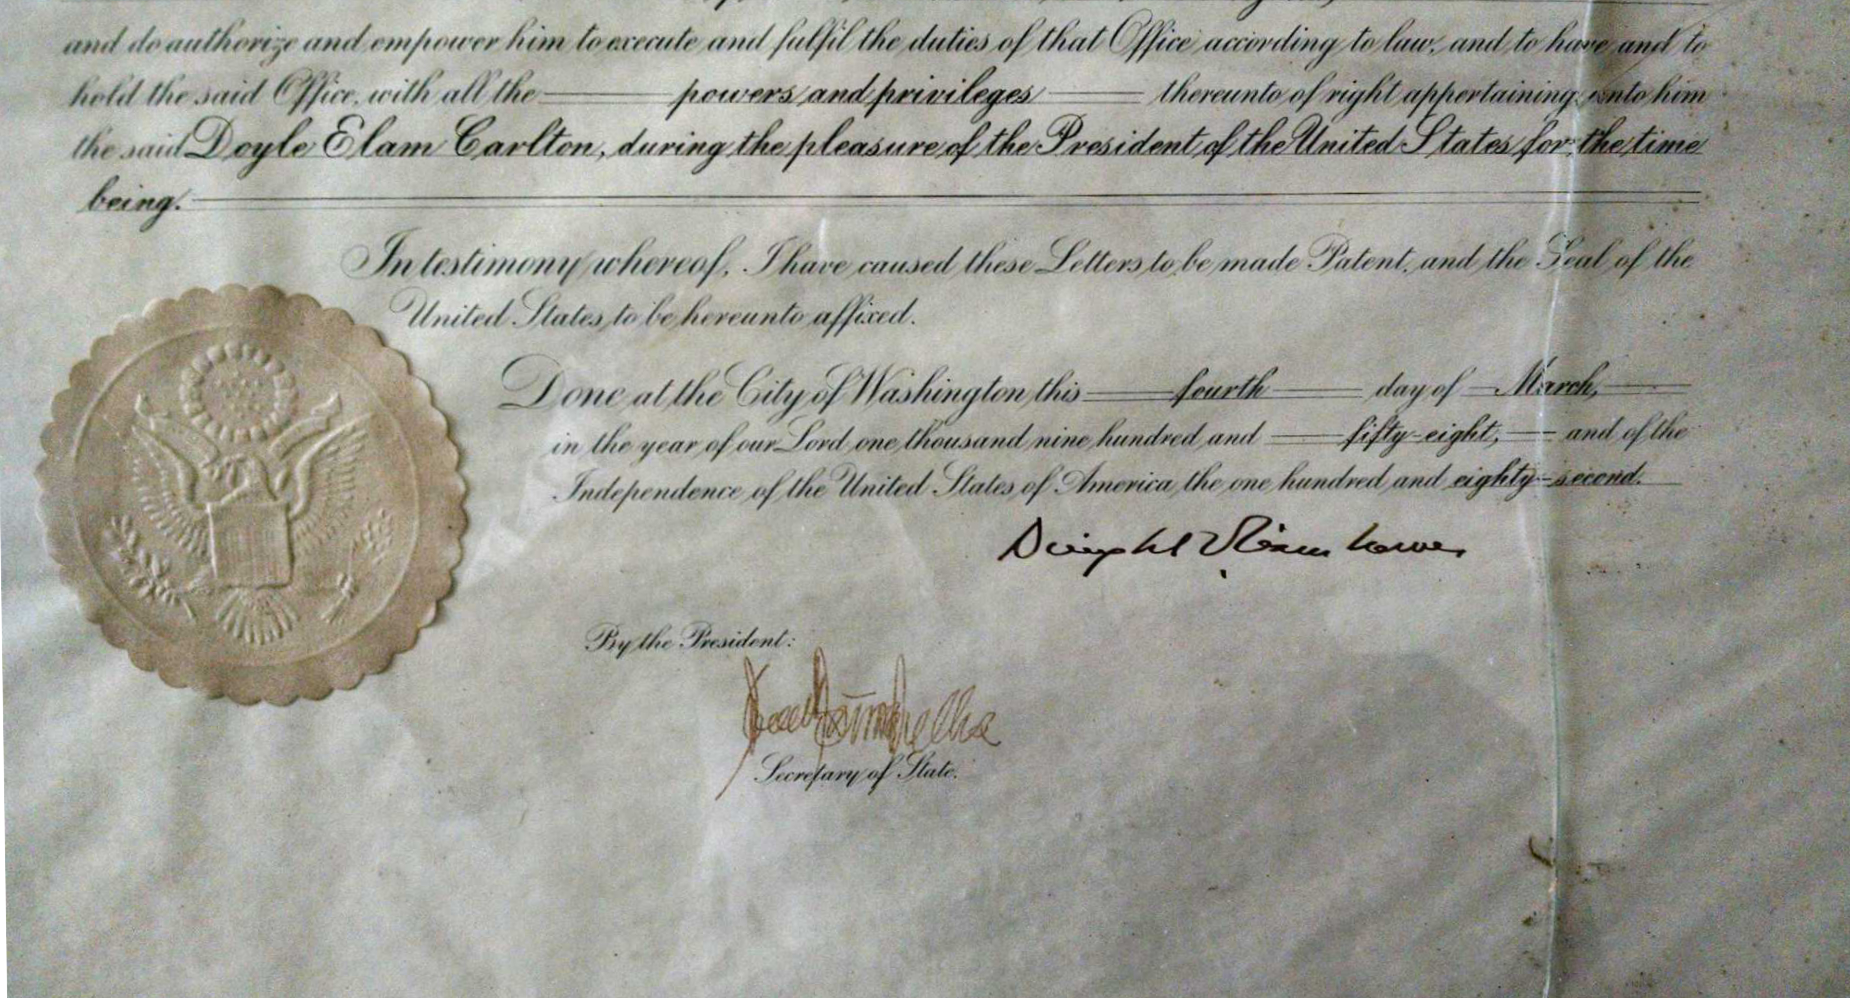 and do authorize and empower him to execute and fulfil the duties of that Office according to law, and to have and to
hold the said Office, with all the powers and privileges thereunto of right appertaining, unto him
the said Doyle Elam Carlton, during the pleasure of the President of the United States for the time
being.
In testimony whereof, I have caused these Letters to be made Patent, and the Seal of the
United States to be hereunto affixed.
Done at the City of Washington this fourth day of March,
in the year of our Lord one thousand nine hundred and fifty-eight, and of the
Independence of the United States of America the one hundred and eighty-second.
Dwight D Eisenhower
By the President:
Secretary of State.